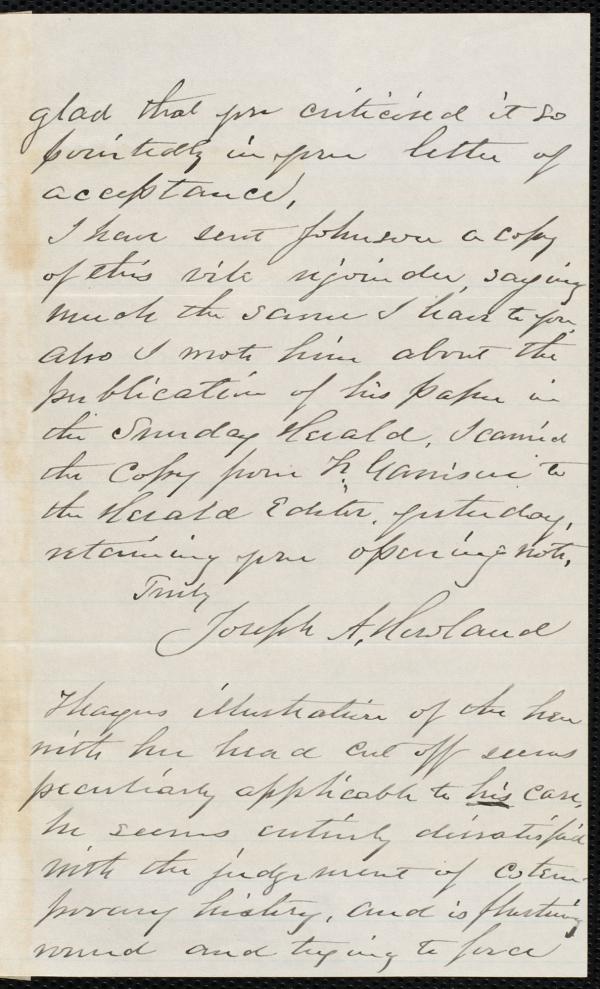 glad that you criticised it so
pointedly in your letter of
acceptance,
I have sent Johnson a copy
of this vile rejoinder, saying
much the same I have to you,
also I wrote him about the
publication of his paper in
the Sunday Herald, I carried
the Copy from F. Garrison to
the Herald Editor, yesterday,
retaining your opening note,
Truly
Joseph A. Howland
Thayers illustration of the hen
with her head cut off seems
peculiarly applicable to his case,
he seems entirely dissatisfied
with the judgement of cotem-
porary history, and is flustering
round and trying to force